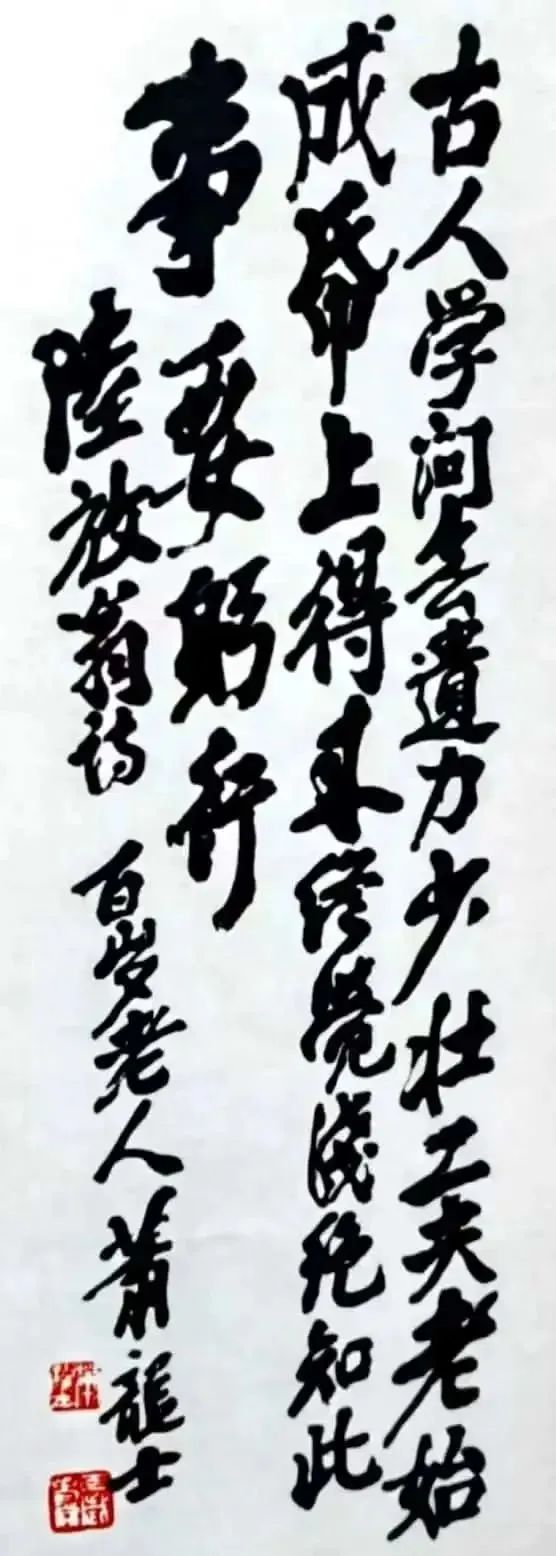 古人学问无遺力少壮工夫老始
成帋上得来终覺淺绝知此
事要躬行
陸放翁诗 百岁老人蕭龍士